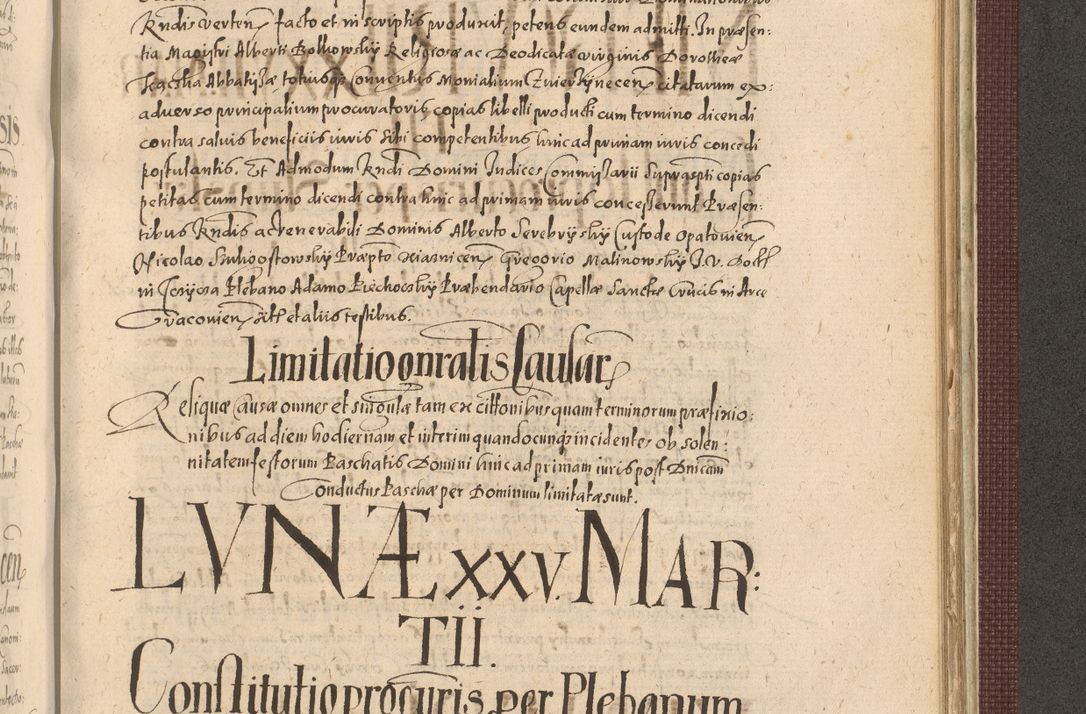 Rndis verten facto et in scriptis produxit, petens eundem admitti. In præsen:
tia Magistri Alberti Bolkowsky Religiosæ ac Deodicatæ virginis Dorotheæ
Abbatissæ, totiusq3 Conventus Monialium Zwierzynecen citatarum ex:
adverso principalium procuratoris, copias libelli producti cum termino dicendi
contra salvis beneficiis iuris sibi competentibus hinc ad primam iuris concedi
postulantis. Et Admodum Rndi Domini Iudices Commissarii Suprascpti copias
petitas cum termino dicendi contra hinc ad primam iuris concesserunt Præsen:
tibus Rndis ac venerabili Dominis Alberto Serebryisky Custode Opatovien
Nicolao Præpto Xiaznicen Gregorio Malinowsky I. V. Doct
in Plebano Adamo Piechocsky Præbendario Capellæ Sanctæ Crucis in Arce
Cracovien et aliis testibus.
Limitatio gnralis Causar
Reliquæ Causæ omnes et singulæ tam ex cittonibus quam terminorum præfinio:
nibus ad diem hodiernam et interim quandocunq3 incidentes ob solen:
nitatem festorum Paschatis Domini hinc ad primam iuris post Dnicam
Conductus Paschæ per Dominum limitatæ sunt.
LVNÆ XXV. MAR:
TII.
Constitutio procuris per Plebanum